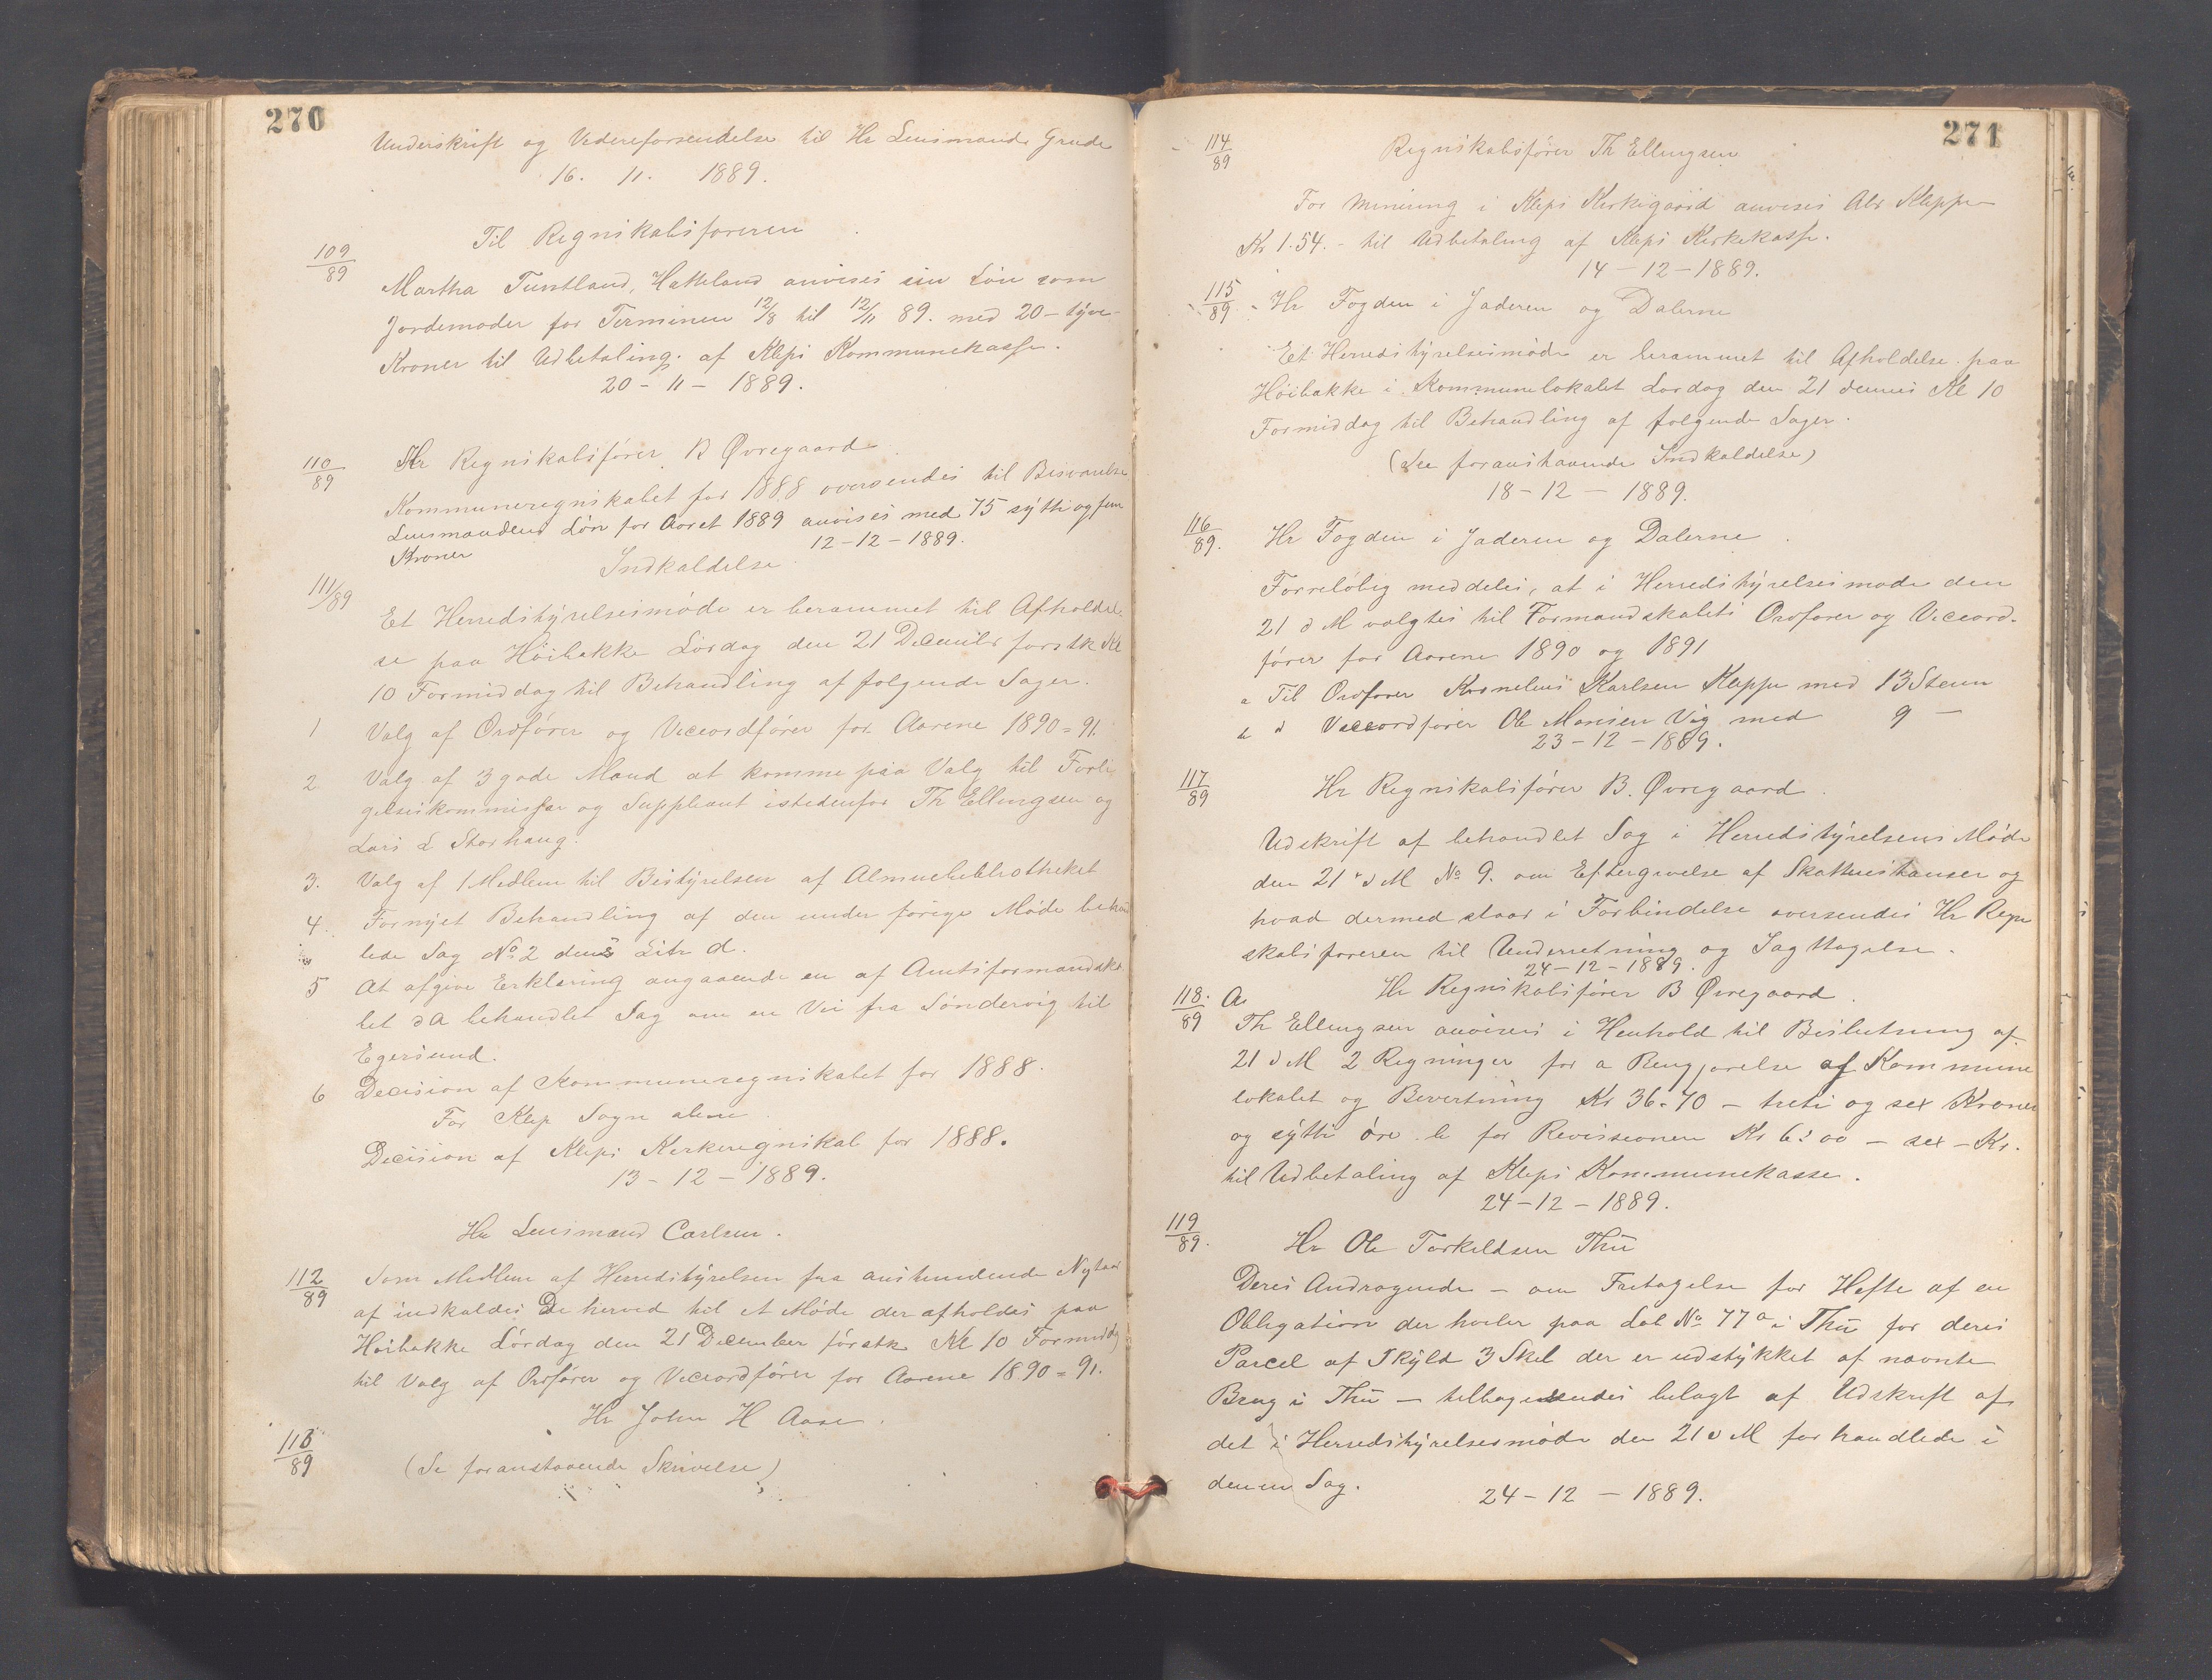 270
Underskrift og Videreforsendelse til Hr Lensmand Grude
16. 11. 1889.
109/89
Til Regnskabsföreren
Martha Tuntland, Hatteland anvises sin Lön som
Jordemoder for Terminen 12/8 til 12/11 89. med 20 - tÿve-
Kroner til Udbetaling af Kleps Kommunekasse.
20 - 11 - 1889.
110/89
Hr Regnskabsförer B Øvregaard
Kommuneregnskabet for 1888 oversendes til Besvarelse
Lensmandens Lön for Aaret 1889 anvises med 75 sÿtti og fem
Kroner
12-12-1889.
111/89
Indkaldelse
Et Herredstÿrelsesmöde er berammet til Afholdel-
se paa Höibakke Lördag den 21 December förstk Kl
10 Formiddag til Behandling af fölgende Sager.
1 Valg af Ordförer og Viceordförer for Aarene 1890=91.
2 Valg af 3 gode Mænd at komme paa Valg til Forli
gelseskommissær og Suppleant istedenfor Th Ellingsen og
Lars L Storhaug.
3. Valg af 1 Medlem til Bestÿrelsen af Almuebibliotheket
4. Fornÿet Behandling af den under forige Möde behand
lede Sag No 2 dens Litr d.
5 At afgive Erklæring angaaende en af Amtsformandska
bet d A behandlet Sag om en Vei fra Söndervig til
Egersund.
6 Decision af Kommuneregnskabet for 1888.
For Klep Sogn alene
Decision af Kleps Kirkeregnskab for 1888.
13-12-1889.
Hr Lensmand Carlsen.
112/89
Som Medlem af Herredstÿrelsen fra anstundende Nytaar
af indkaldes De herved til et Möde der afholdes paa
Höibakke Lördag den 21 December förstk Kl 10 Formiddg
til Valg af Ordförer og Viceordförer for Aarene 1890=91.
Hr John H Aase.
113/89
(Se foranstaaende Skrivelse)
271
114/89
Regnskabsförer Th Ellingsen
For Mineering i Kleps Kirkegaard anvises Abr Kleppe
Kr 1.54. - til Udbetaling af Kleps Kirkekasse.
14-12-1889.
115/89
Hr Fogden i Jæderen og Dalerne
Et Herredstÿrelsesmöde er berammet til Afholdelse paa
Höibakke i Kommunelokalet Lördag den 21 dennes Kl 10
Formiddag til Behandling af fölgende Sager.
(See foranstaaende Indkaldelse)
18-12-1889.
116/89.
Hr Fogden i Jæderen og Dalerne
Foreløbig meddeles, at i Herredstÿrelsesmöde den
21 d M valgtes til Formandskabets Ordförer og Viceord-
förer for Aarene 1890 og 1891
a Til Ordförer Kornelius Karlsen Kleppe med 13 Stem
b d Viceordförer Ole Monsen Vig med 9 -
23-12-1889.
117/89
Hr Regnskabsförer B. Øvregaard
Udskrift af behandlet Sag i Herredstÿrelsens Möde
den 21 d M No 9. om Eftergivelse af Skatterestanser og
hvad dermed staar i Forbindelse oversendes Hr Regn
skabsföreren til Underretning og Iagttagelse.
24-12-1889.
118/89
A
Hr Regnskabsförer B Øvregaard
Th Ellingsen anvises i Henhold til Beslutning af
21 d M 2 Regninger for a Rengjörelse af Kommune
lokalet og Bevertning Kr 36.70 - treti og sex Kroner
og sÿtti öre b for Revisionen Kr 6:00 - sex - Kr.
til Udbetaling af Kleps Kommunekasse.
24-12-1889.
119/89.
Hr Ole Torkeldsen Thu
Deres Andragende - om Fritagelse for Hefte af en
Obligation der hviler paa Löb No 77a i Thu for deres
Parcel af Skÿld 3 Skel der er udstÿkket af nævnte
Brug i Thu - tilbagesendes belagt af Udskrift af
det i Herredstÿrelsesmöde den 21 d M forhandlede i
denne Sag.
24-12-1889.